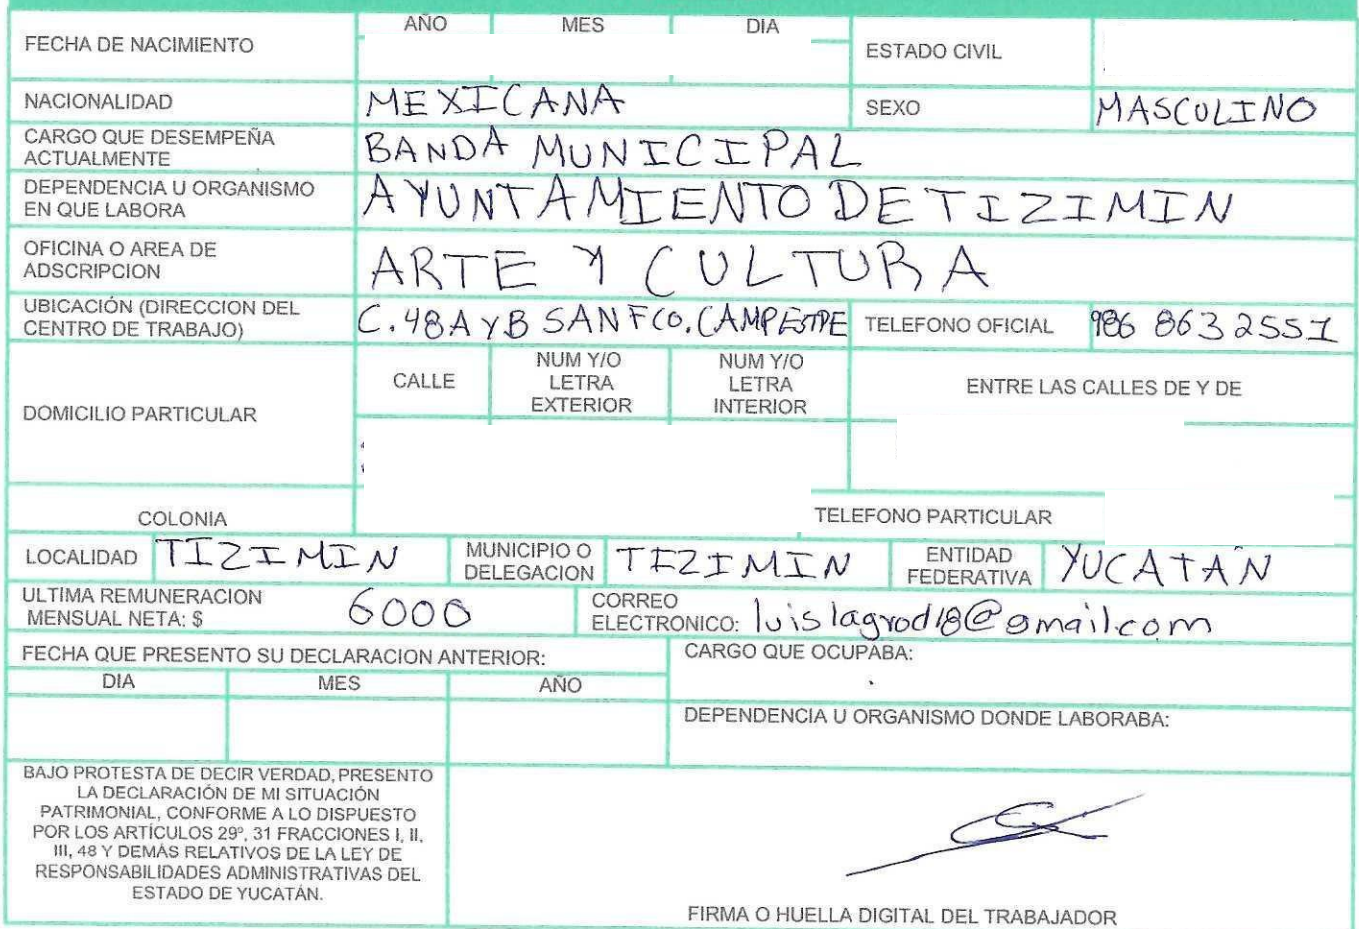 FECHA DE NACIMIENTO
AÑO MES DIA
ESTADO CIVIL
NACIONALIDAD MEXICANA SEXO MASCULINO
CARGO QUE DESEMPEÑA
ACTUALMENTE
BANDA MUNICIPAL
DEPENDENCIA U ORGANISMO
EN QUE LABORA
AYUNTAMIENTO DE TIZIMIN
OFICINA O AREA DE
ADSCRIPCION
ARTE Y CULTURA
UBICACIÓN (DIRECCION DEL
CENTRO DE TRABAJO)
C. 48A Y B SAN FCO. CAMPESTRE TELEFONO OFICIAL 986 863 2551
DOMICILIO PARTICULAR
CALLE
NUM Y/O
LETRA
EXTERIOR
NUM Y/O
LETRA
INTERIOR
ENTRE LAS CALLES DE Y DE
COLONIA TELEFONO PARTICULAR
LOCALIDAD TIZIMIN
MUNICIPIO O
DELEGACION
TIZIMIN
ENTIDAD
FEDERATIVA
YUCATAN
ULTIMA REMUNERACION
MENSUAL NETA: $ 6000
CORREO
ELECTRONICO: luislagrod18@gmail.com
FECHA QUE PRESENTO SU DECLARACION ANTERIOR:
DIA MES AÑO
CARGO QUE OCUPABA:
DEPENDENCIA U ORGANISMO DONDE LABORABA:
BAJO PROTESTA DE DECIR VERDAD, PRESENTO
LA DECLARACIÓN DE MI SITUACIÓN
PATRIMONIAL, CONFORME A LO DISPUESTO
POR LOS ARTÍCULOS 29º, 31 FRACCIONES I, II,
III, 48 Y DEMÁS RELATIVOS DE LA LEY DE
RESPONSABILIDADES ADMINISTRATIVAS DEL
ESTADO DE YUCATÁN.
FIRMA O HUELLA DIGITAL DEL TRABAJADOR